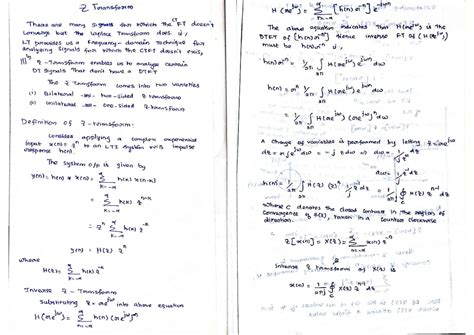 Z Transform
There are many signals for which the CTFT doesn't
converge but the Laplace Transform does &
LT provides us a frequency-domain technique for
analyzing signals for which the CTFT doesn't exist,
III) Z-Transform enables us to analyze certain
DT signals that don't have a DTFT
The Z Transform comes into two varieties
(i) Bilateral two-sided Z transform
(ii) Unilateral one-sided Z-transform
Definition of Z-transform:
Consider applying a complex exponential
input x(n) = zⁿ to an LTI system with impulse
response h(n).
The system o/p is given by
y(n) = h(n) * x(n) = Σ h(k) x(n-k)
k=-∞
= Σ h(k) z^(n-k)
k=-∞
= zⁿ Σ h(k) z^(-k)
k=-∞
y(n) = H(z) zⁿ
where
H(z) = Σ h(k) z^(-k)
k=-∞
Inverse Z-Transform
Substituting z = re^(jω) into above equation
H(re^(jω)) = Σ h(n) (re^(jω))
n=-∞
H(re^(jω)) = Σ [h(n) r^(-n)] e^(-jωn)
n=-∞
The above equation indicates that H(re^(jω)) is the
DTFT of [h(n) r^(-n)] Hence inverse FT of (H(re^(jω)))
must be h(n) r^(-n) i,
h(n) r^(-n) = 1/2π ∫ H(re^(jω)) e^(jωn) dω
2π
h(n) = rⁿ 1/2π ∫ H(re^(jω)) e^(jωn) dω
2π
= 1/2π ∫ H(re^(jω)) (re^(jω))ⁿ dω
2π
A change of variables is performed by letting z = re^(jω)
h(n) = 1/2π ∮ H(z) zⁿ 1/jz dz = 1/2πj ∮ H(z) z^(n-1) dz
where C denotes the closed contour in the region of
convergence of H(z), taken in a counter clockwise
direction.
Z[x(n)] = X(z) = Σ x(n) z^(-n)
n=-∞
Inverse Z transform of X(z) is
x(n) = 1/2πj ∮ X(z) z^(n-1) dz